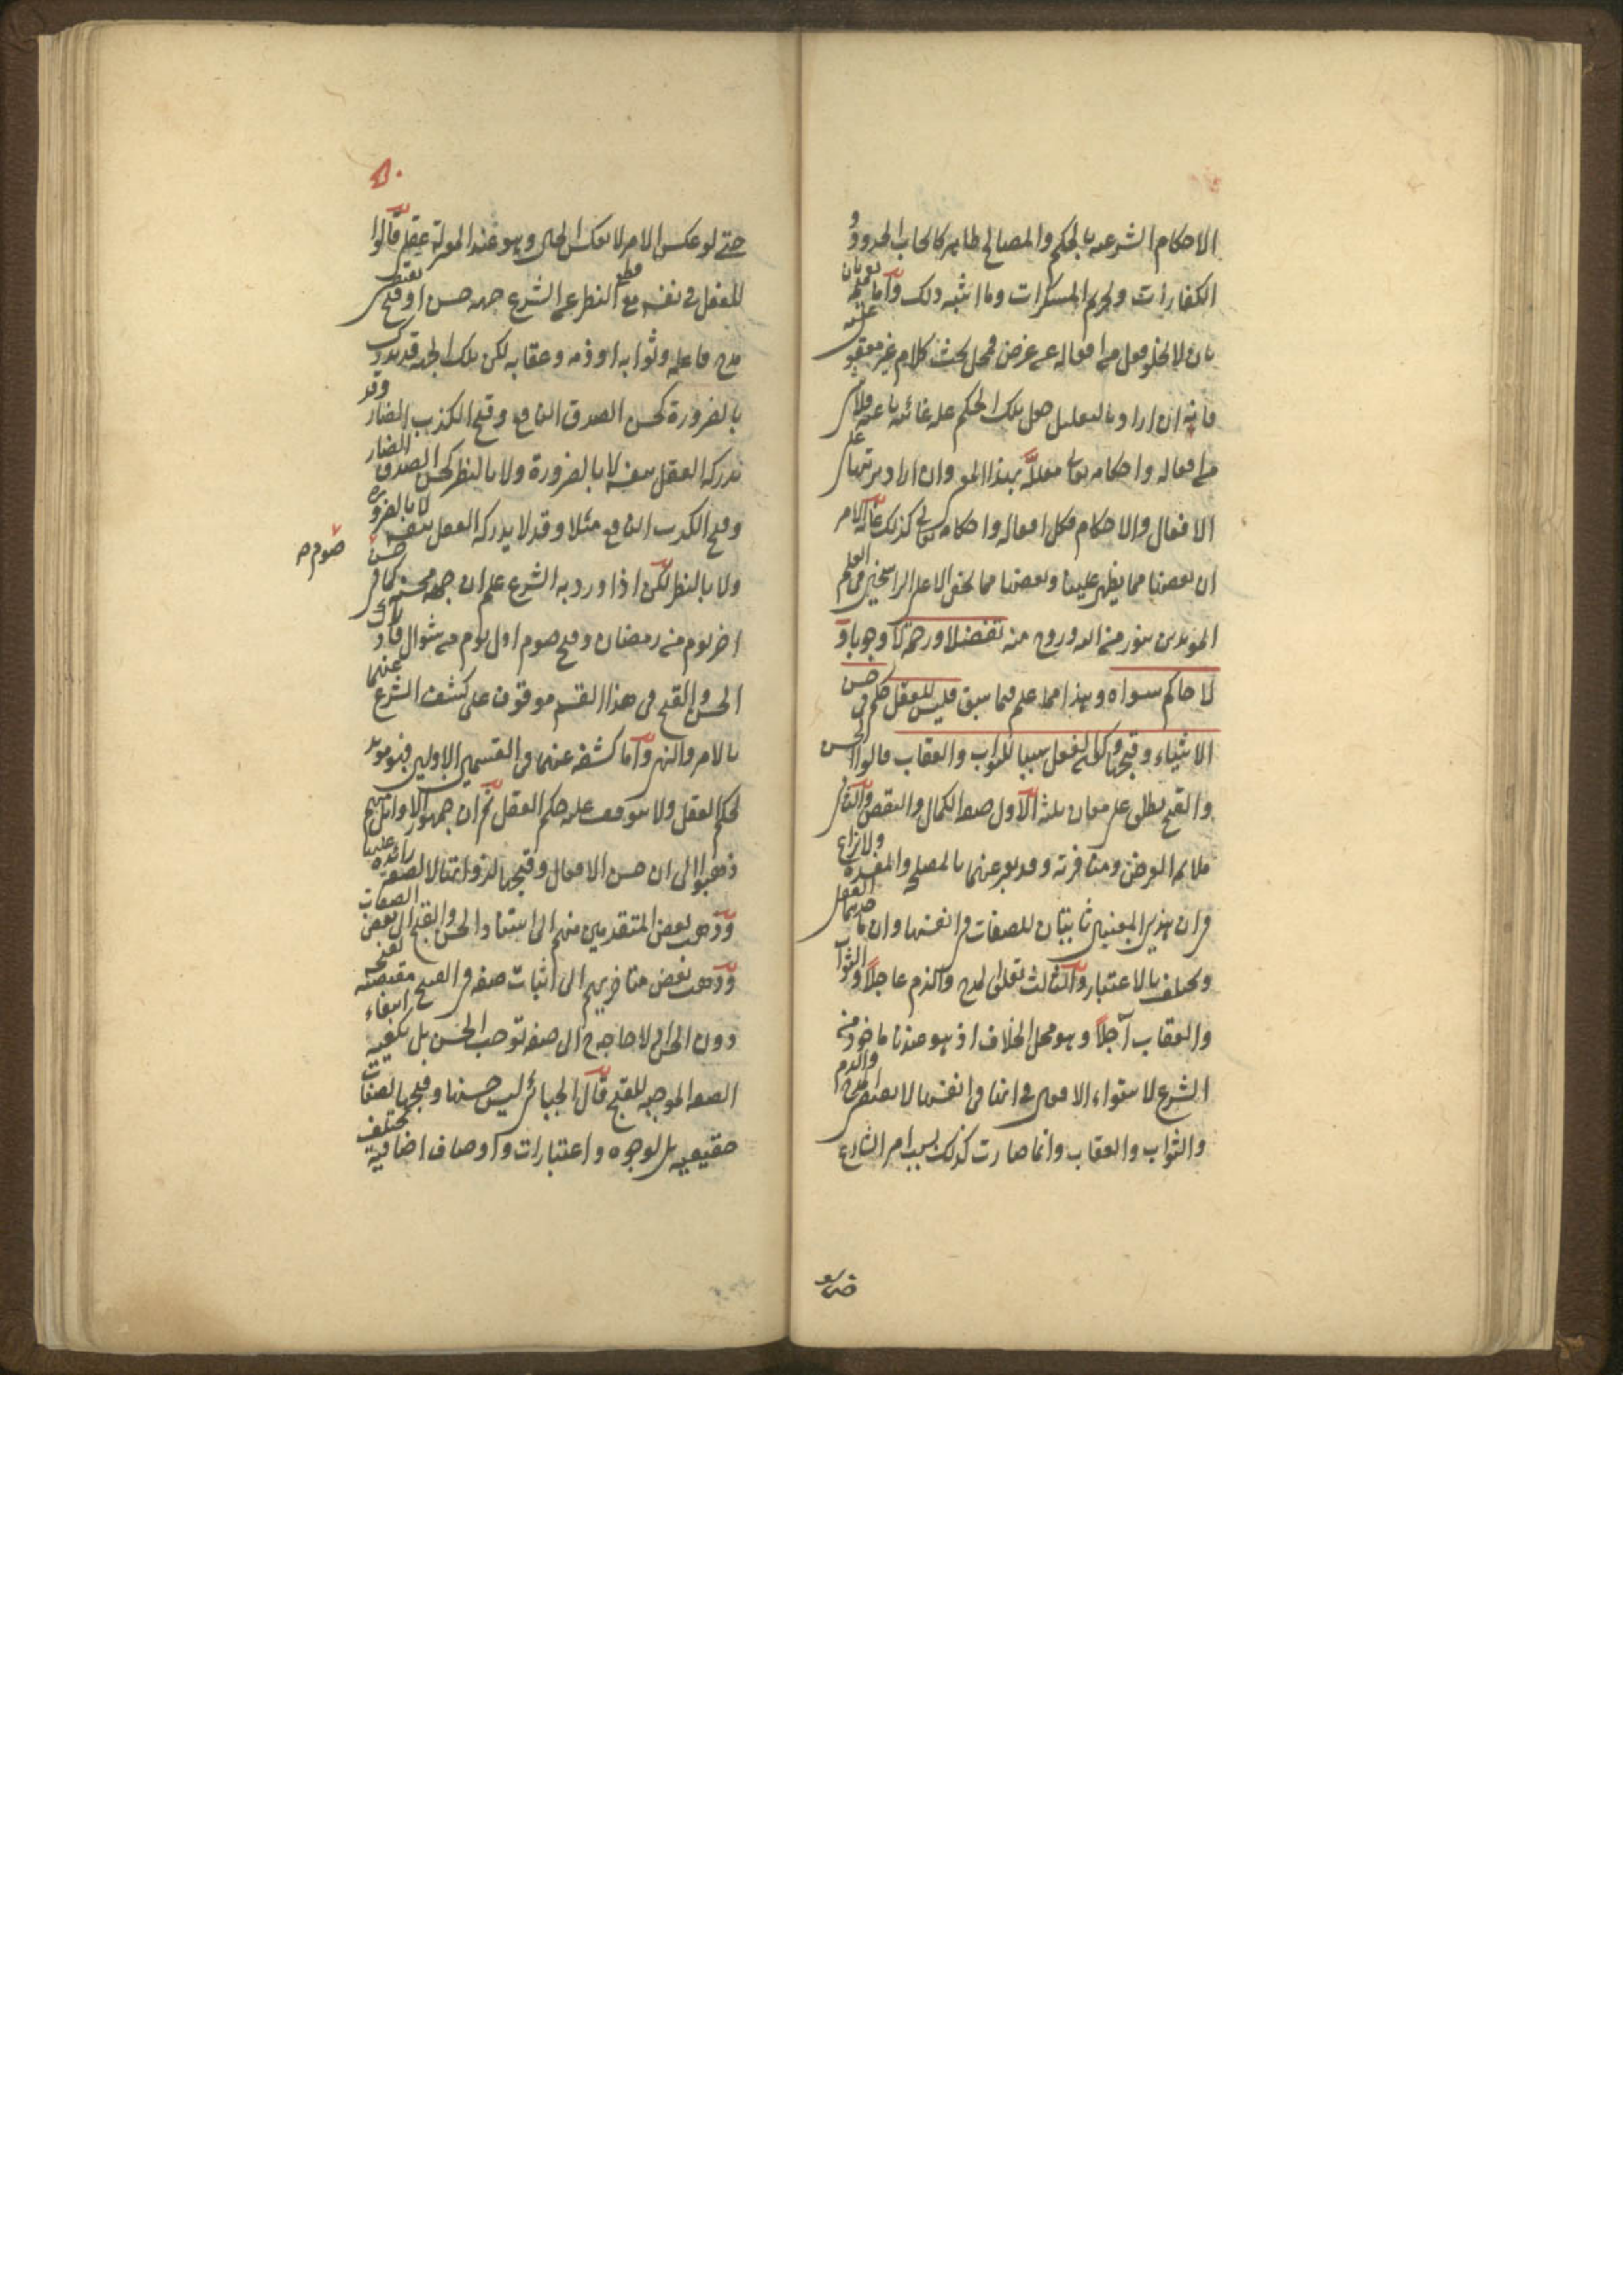 الاحكام الشرعية بالحكم والمصالح ظاهر كايجاب الحدود و
الكفارات وتحريم المسكرات وما اشبه ذلك واما تعميمه
بان لا يخلو فعل من افعاله عن غرض فمحل بحث كلام غير
فانه ان اراد بالتعليل جعل تلك الحكم علة غائية باعثة فلا شئ
من افعاله واحكامه تعالى معللا بهذا المعنى وان اراد ترتبها على
الافعال والاحكام فكل افعاله واحكامه تعالى كذلك غاية الامر
ان بعضها مما يظهر علينا وبعضها مما يخفى الا على الراسخين في العلم
المؤيدين بنور من الله وروح منه تفضلا ورحمة لا وجوبا و
لا حاكم سواه وهذا مما علم فيما سبق فليس للعقل حكم في حسن
الاشياء وقبحها وكون الفعل سببا للثواب والعقاب قالوا الحسن
والقبح يطلق على معان ثلثة الاول صفة الكمال والنقص والثاني
ملايمة الغرض ومنافرته وقد يعبر عنهما بالمصلحة والمفسدة ولا نزاع
في ان هذين المعنيين ثابتان للصفات في انفسها وان مأخذهما العقل
ويختلف بالاعتبار والثالث تعلق المدح والذم عاجلا والثواب
والعقاب آجلا وهو محل الخلاف اذ هو عندنا مأخوذ من
الشرع لاستواء الافعال في انها في انفسها لا يقتضى المدح والذم
والثواب والعقاب وانما صارت كذلك بسبب امر الشارع
حتى لو عكس الامر لانعكس الحال وهو عند المعتزلة عقلي قالوا
للفعل في نفسه مع قطع النظر عن الشرع جهة حسن او قبح يقتضى
مدح فاعله وثوابه او ذمه وعقابه لكن تلك الجهة قد يدرك
بالضرورة كحسن الصدق النافع وقبح الكذب الضار وقد
يدركه العقل بنفسه لا بالضرورة ولا بالنظر كحسن الصدق الضار
وقبح الكذب النافع مثلا وقد لا يدركه العقل بنفسه لا بالضرورة
ولا بالنظر لكن اذا ورد به الشرع علم ان جهة محسنة كما في حسن
صوم صح
اخر يوم من رمضان وقبح صوم اول يوم من شوال فادراك
الحسن والقبح في هذا القسم موقوف على كشف الشرع عنهما
بالامر والنهي واما كشفه عنهما في القسمين الاولين فهو مؤيد
لحكم العقل ولا يتوقف عليه حكم العقل ثم ان جمهور الاوائل منهم
ذهبوا الى ان حسن الافعال وقبحها لذواتها لا لصفة زائدة عليها
وذهب بعض المتقدمين منهم الى استناد الحسن والقبح الى بعض الصفات
وذهب بعض متأخريهم الى اثبات صفة في القبيح مقتضية لقبحه
دون الحسن اذ لا حاجة الى صفة توجب الحسن بل يكفيه انتفاء
الصفة الموجبة للقبح قال الجبائي ليس حسنها وقبحها لصفات
حقيقية بل لوجوه واعتبارات واوصاف اضافية يختلف